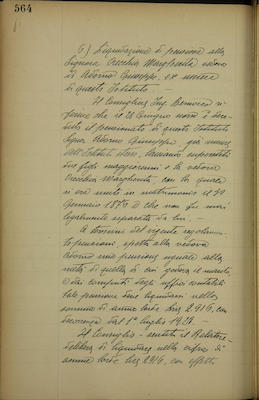 564
6) Liquidazione di pensione alla
Signora Vecchia Margherita vedova
di Adorno Giuseppe, ex usciere
di questo Istituto. —
Il Consigliere Ing. riferisce
che il 26 Giugno è decesso
il pensionato di questo Istituto
Signor Adorno Giuseppe già usciere
dell'Istituto stesso, lasciando superstiti
due figli maggiorenni e la vedova
Vecchia Margherita con la quale
si era unito in matrimonio il 30
Gennaio 1876 e che non fu mai
legalmente separata da lui. —
A termini del vigente regolamento
pensioni, spetta alla vedova
Adorno una pensione uguale alla
metà di quella di cui godeva il marito
e dai computi degli uffici contabili
tale pensione deve liquidarsi nella
somma di annue lorde lire 2.916, con
decorrenza dal 1° luglio 1928.
Il Consiglio - sentito il Relatore -
delibera di liquidare nella cifra di
annue lorde lire 2916, con effetto